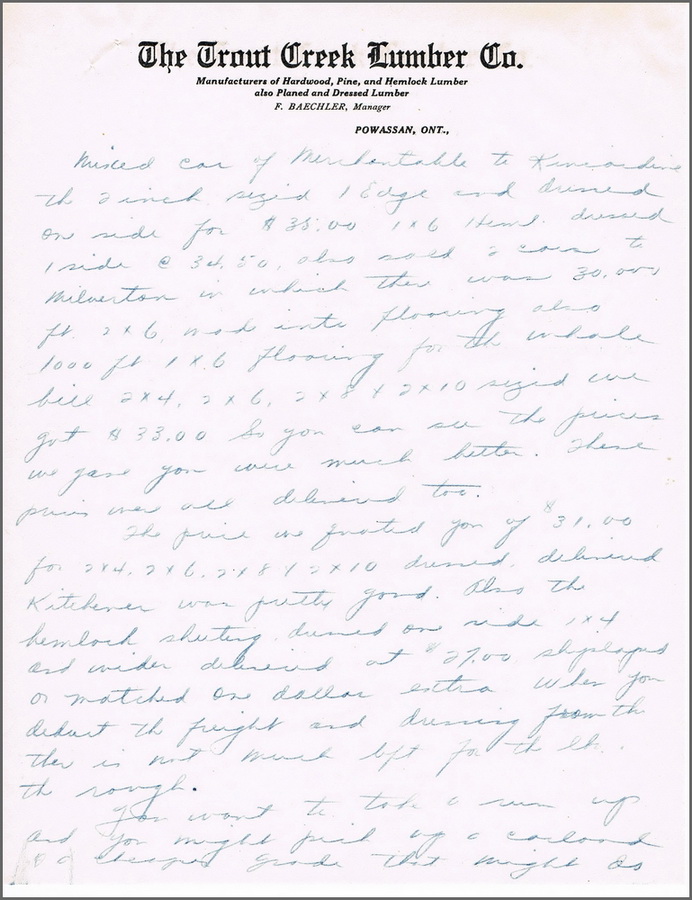 The Trout Creek Lumber Co.
Manufacturers of Hardwood, Pine, and Hemlock Lumber
also Planed and Dressed Lumber
F. BAECHLER, Manager
POWASSAN, ONT.,
Mixed car of Merchentable to Kincardine
th 2 inch sized 1 Edge and dressed
on side for $35.00 1x6 Heml. dressed
1 side @ 34.50, also sold 2 cars to
Milverton in which ther was 30,000
ft. 2x6, mad into flooring also
1000 ft 1x6 flooring for th whole
bill 2x4, 2x6, 2x8 & 2x10 sized we
got $33.00 So you can see the prices
we gave you were much better. These
prices were all delivered too.
The price we quoted you of $31.00
for 2x4, 2x6, 2x8 & 2x10 dressed, delivered
Kitchener was pretty good. Also the
hemlock sheeting dressed one side 1x4
and wider delivered at $27.00, shiplaped
or matched one dollar extra When you
deduct th freight and dressing from th
ther is not much left for th
th rough.
You want to take a run up
and you might pick up a carload
a cheaper grade that might do